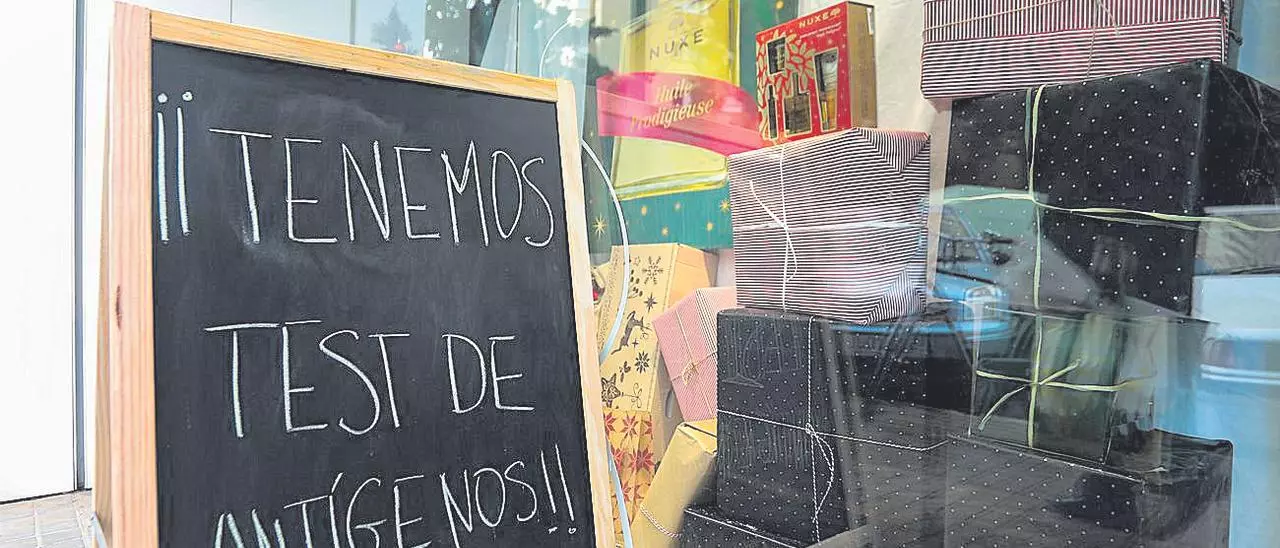 ¡¡TENEMOS
TEST DE
ANTÍGENOS!!
NUXE
Huile
Prodigieuse
NUXE